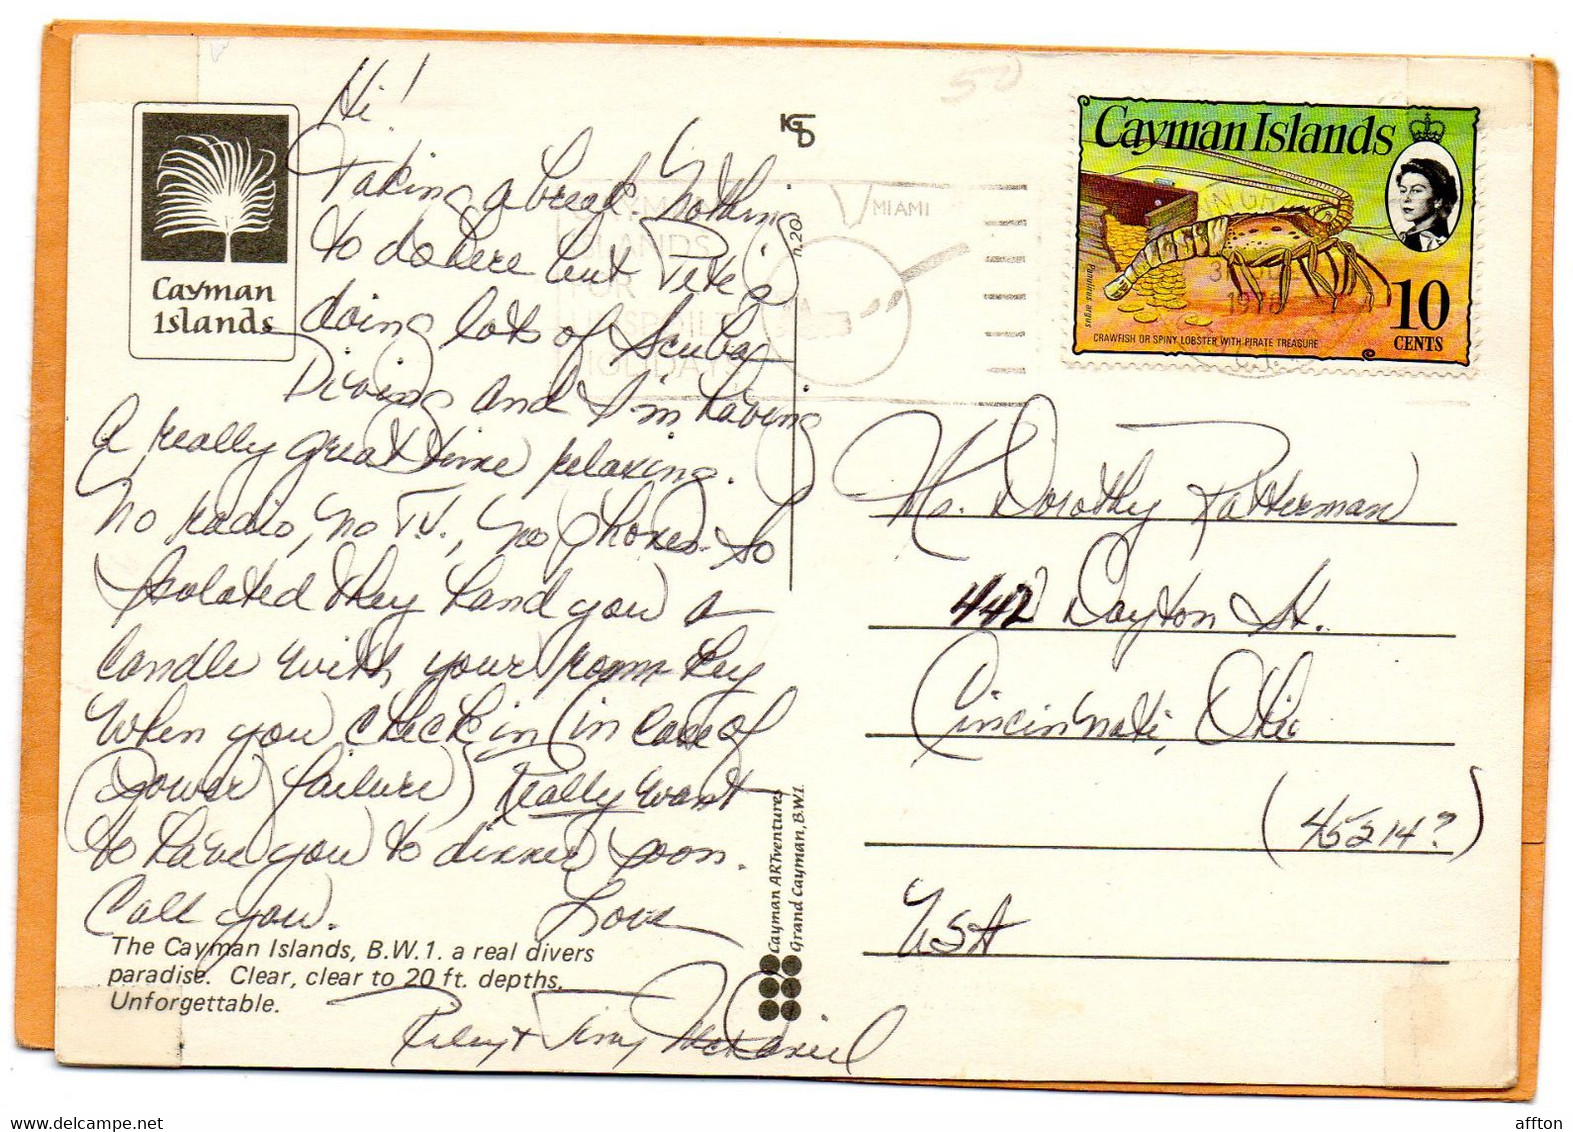 Hi!
Taking a break. Nothing
to do here but Pete's
doing lots of Scuba
Diving and I'm having
a really great time relaxing.
No radio, no T.V., no phones. So
isolated they hand you a
candle with your room key
when you check in (in case of
power failure) Really want
to have you to dinner soon.
Call you. Love
McDaniel
Cayman
Islands
The Cayman Islands, B.W.1. a real divers
paradise. Clear, clear to 20 ft. depths.
Unforgettable.
n.20
Cayman ARTventures
Grand Cayman, B.W.I.
50
CAYMAN
ISLANDS
FOR
UNSPOILED
HOLIDAYS
MIAMI
Cayman Islands
Panulirus argus
10
CENTS
CRAWFISH OR SPINY LOBSTER WITH PIRATE TREASURE
Ms. Dorothy Ratterman
442 Dayton St.
Cincinnati, Ohio
(45214?)
USA
affton